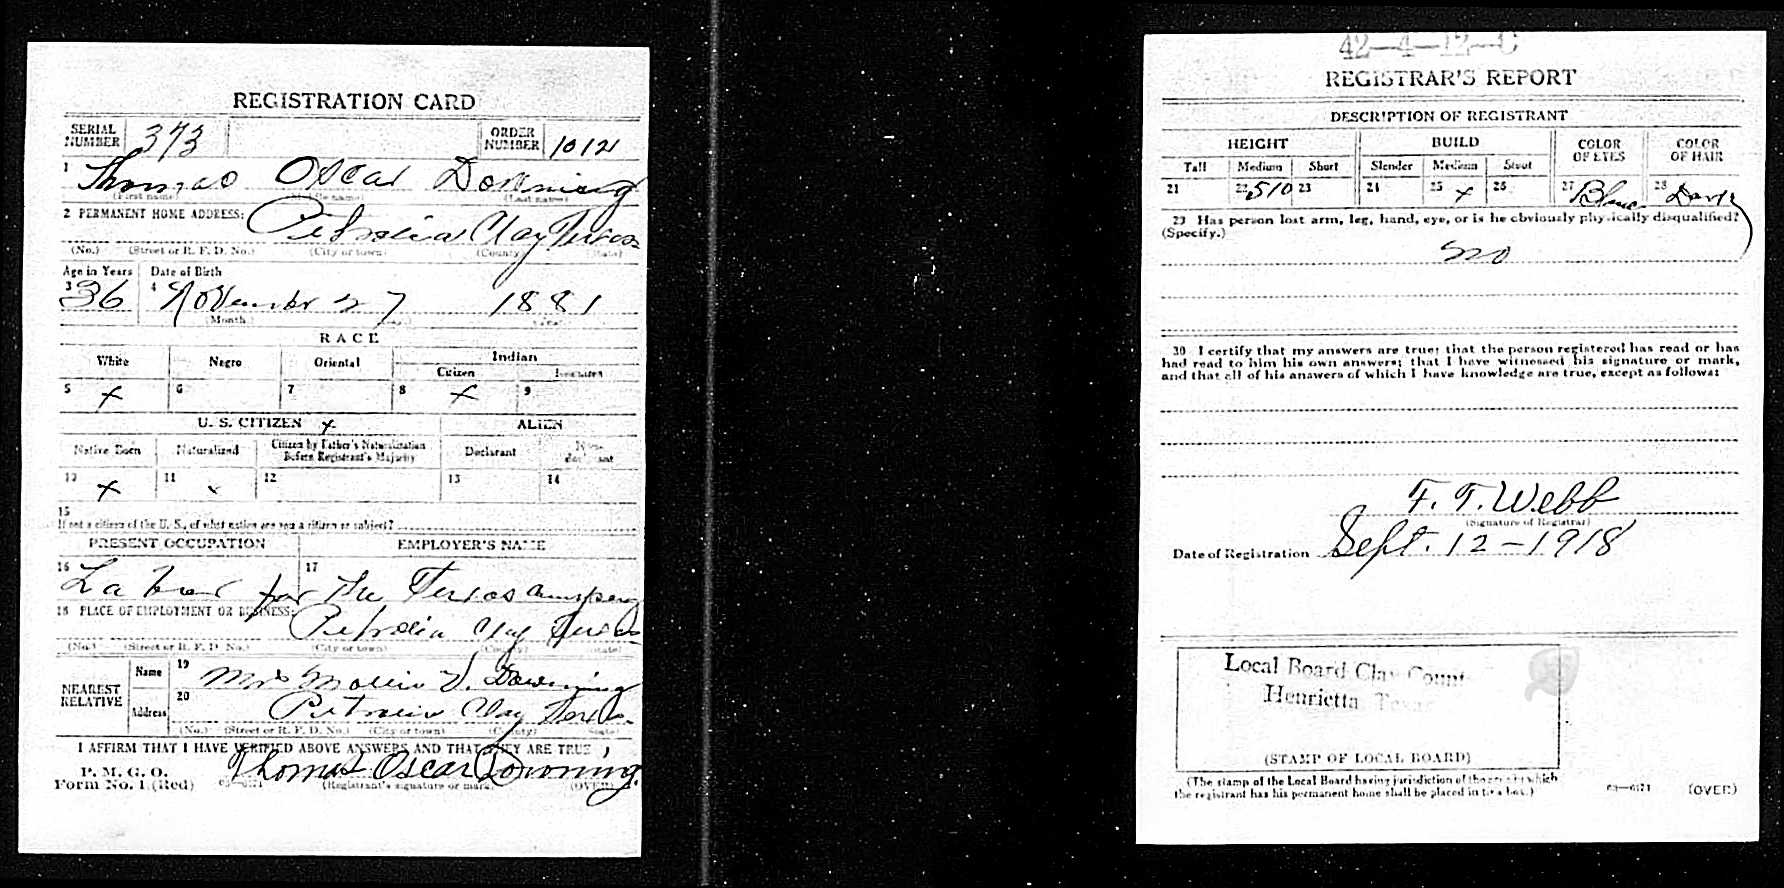 REGISTRATION CARD
SERIAL NUMBER 373 ORDER NUMBER 1012
1 Thomas Oscar Downing
(First name) (Last name)
2 PERMANENT HOME ADDRESS: Petrolia Clay Texas
(No.) (Street or R. F. D. No.) (City or town) (County) (State)
Age in Years Date of Birth
3 36 4 November 27 1881
(Month)
RACE
White Negro Oriental Indian
Citizen
5 x 6 7 8 x 9
U. S. CITIZEN x ALIEN
Native Born Naturalized Citizen by Father's Naturalization Before Registrant's Majority Declarant
10 x 11 12 13 14
15
If not a citizen of the U. S., of what nation are you a citizen or subject?
PRESENT OCCUPATION EMPLOYER'S NAME
16 Labor for 17 The Texas Company
18 PLACE OF EMPLOYMENT OR BUSINESS:
Petrolia Clay Texas
(No.) (Street or R. F. D. No.) (City or town) (County) (State)
NEAREST RELATIVE Name 19 Mrs Mollie V. Downing
Address 20 Petrolia Clay Texas
(No.) (Street or R. F. D. No.) (City or town) (County) (State)
I AFFIRM THAT I HAVE VERIFIED ABOVE ANSWERS AND THAT THEY ARE TRUE
P. M. G. O.
Form No. 1 (Red) Thomas Oscar Downing
(Registrant's signature or mark) (OVER)
42-4-12-C
REGISTRAR'S REPORT
DESCRIPTION OF REGISTRANT
HEIGHT BUILD COLOR OF EYES COLOR OF HAIR
Tall Medium Short Slender Medium Stout
21 22 510 23 24 25 x 26 27 Blue 28 Dark
29 Has person lost arm, leg, hand, eye, or is he obviously physically disqualified?
(Specify.)
no
30 I certify that my answers are true; that the person registered has read or has
had read to him his own answers; that I have witnessed his signature or mark,
and that all of his answers of which I have knowledge are true, except as follows:
F. T. Webb
(Signature of Registrar)
Date of Registration Sept. 12-1918
Local Board Clay County
Henrietta Texas
(STAMP OF LOCAL BOARD)
(The stamp of the Local Board having jurisdiction of the area in which
the registrant has his permanent home shall be placed in this box.)
03-6171 (OVER)